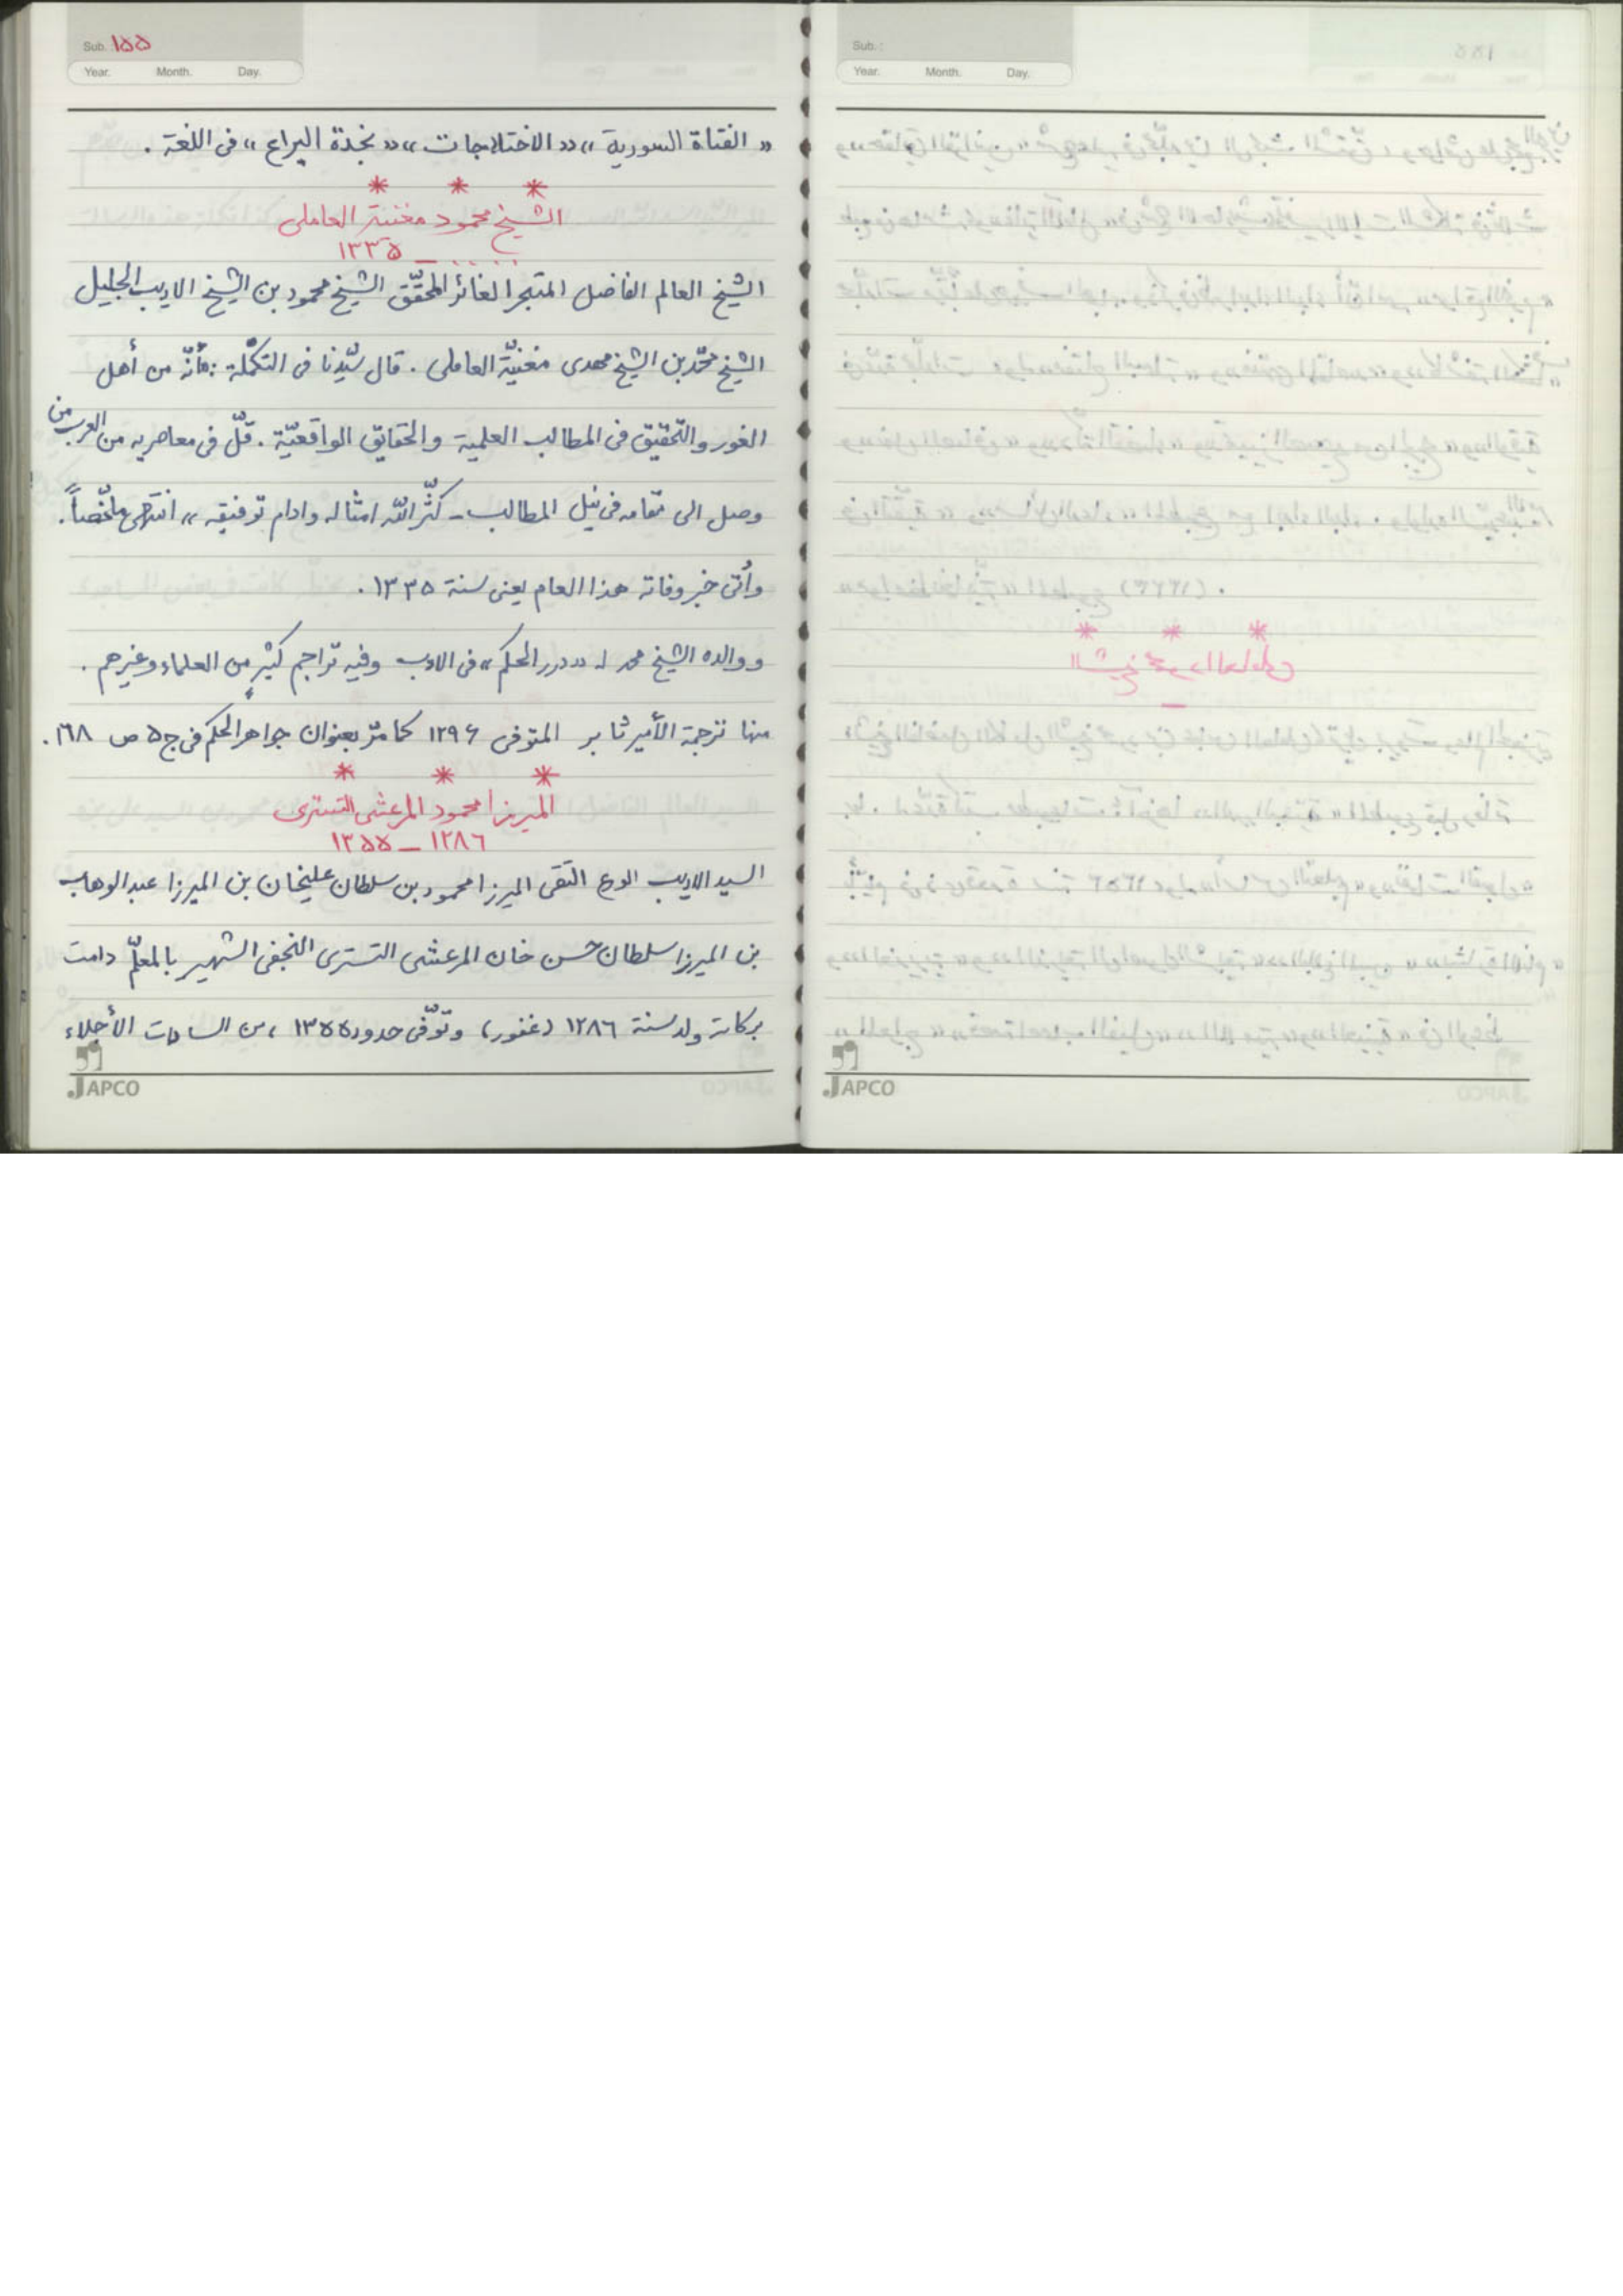 Sub. : ۱۵۵
Year. Month. Day.
« الفتاة السورية » « الاختلاجات » « نجدة اليراع » فى اللغة .
* * *
الشيخ محمود مغنية العاملى
..... ــ ۱۳۳۵
الشيخ العالم الفاضل المتبحر الغائر المحقّق الشيخ محمود بن الشيخ الاديب الجليل
الشيخ محمّد بن الشيخ مهدى مغنيّة العاملى . قال سيّدنا فى التكملة : «أنّه من أهل
الغور والتحقيق فى المطالب العلمية والحقايق الواقعيّة . قلّ فى معاصريه من العرب من
وصل الى مقامه فى نيل المطالب ــ كثّر الله امثاله وادام توفيقه » انتهى ملخّصاً .
وأتى خبر وفاته هذا العام يعنى سنة ۱۳۳۵ .
و والده الشيخ محمد له « درر الحكم » فى الادب وفيه تراجم كثير من العلماء وغيرهم .
منها ترجمة الأمير ثامر المتوفى ۱۲۹۶ كما مرّ بعنوان جواهر الحكم فى ج ۵ ص ۱۶۸ .
* * *
الميرزا محمود المرعشى التسترى
۱۲۸۶ ــ ۱۳۵۵
السيد الاديب الورع التقى الميرزا محمود بن سلطان عليخان بن الميرزا عبد الوهاب
بن الميرزا سلطان حسن خان المرعشى التسترى النجفى الشهير بالمعلّم دامت
بركاته ولد سنة ۱۲۸۶ (غفور) وتوّفى حدود ۱۳۵۵ ، من السادات الأجلاء
JAPCO
Sub. :
Year. Month. Day.
JAPCO